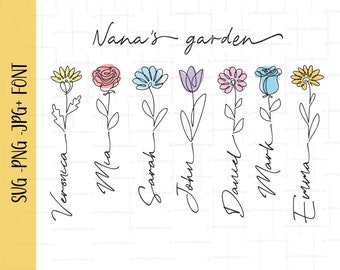 Nana's garden
SVG -PNG -JPG+ FONT
Veronica
Mia
Sarah
John
Daniel
Mark
Emma